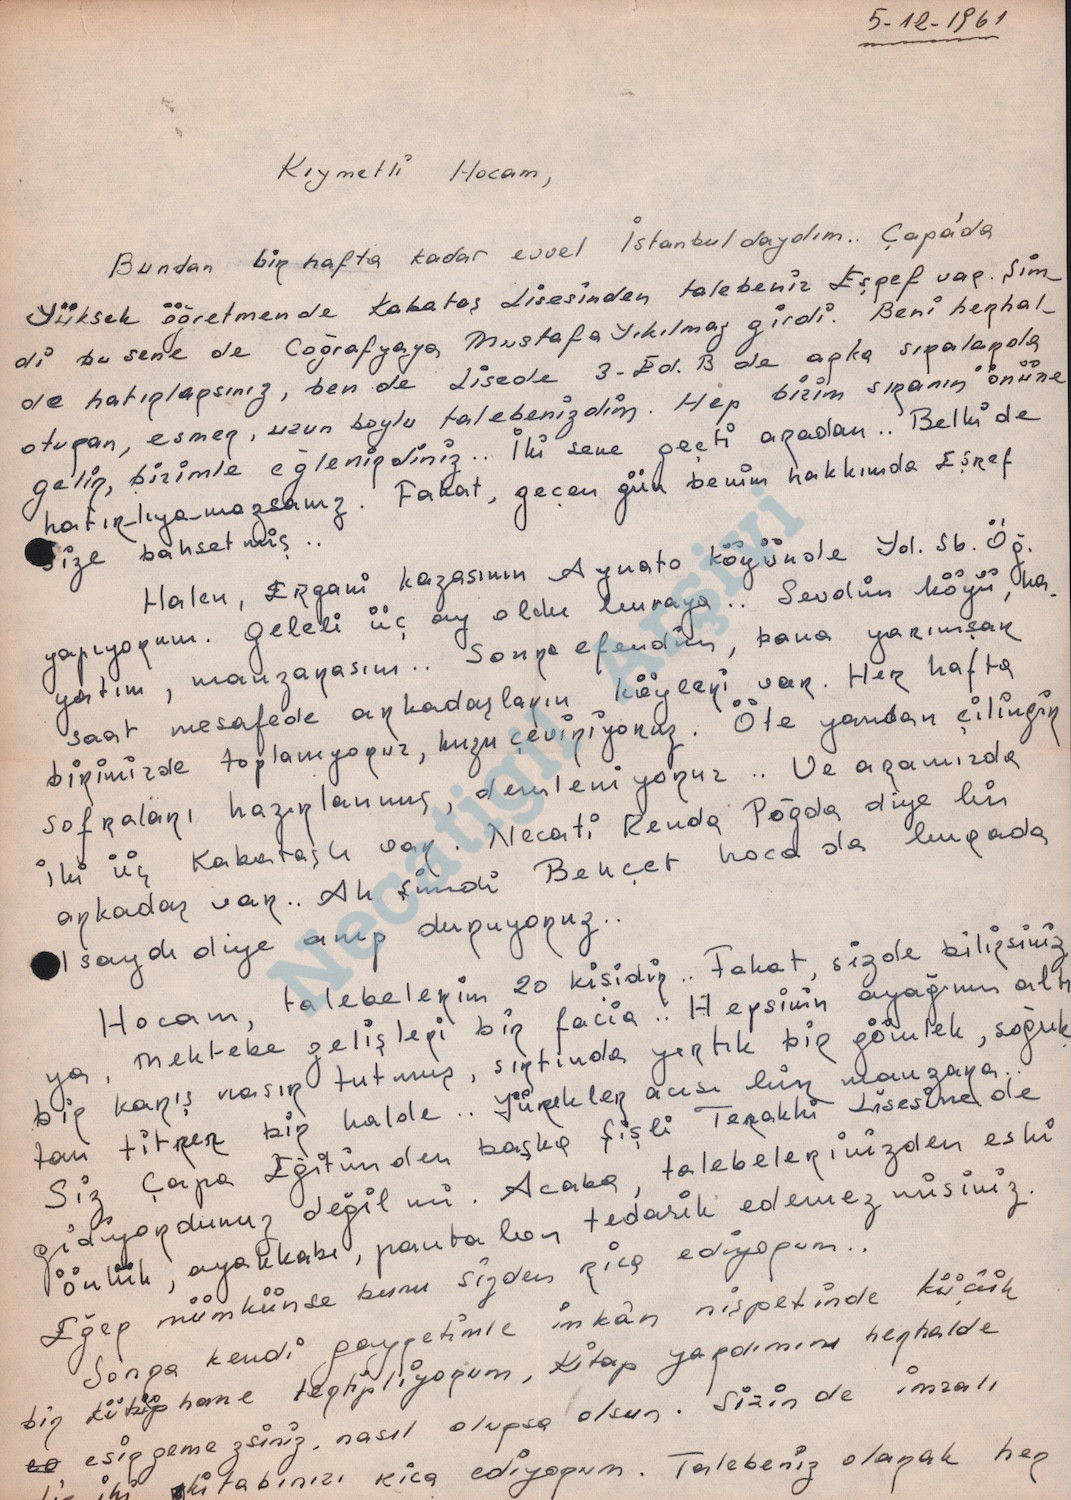 5-12-1961
Kıymetli Hocam,
Bundan bir hafta kadar evvel İstanbuldaydım.. Çapa'da
Yüksek öğretmende Kabataş Lisesinden talebeniz Eşref var. Şim-
di bu sene de Coğrafyaya Mustafa Yıkılmaz girdi. Beni herhal-
de hatırlarsınız, ben de Lisede 3-Ed. B de arka sıralarda
oturan, esmer, uzun boylu talebenizdim. Hep bizim sıranın önüne
gelir, bizimle eğlenirdiniz.. İki sene geçti aradan.. Belki de
hatır-lıya-mazsanız. Fakat, geçen gün benim hakkımda Eşref
Size bahsetmiş..
Halen, Ergani kazasının Aynato köyünde Yd. Sb. Öğ.
yapıyorum. Geleli üç ay oldu buraya.. Sevdim köyü, ha-
yatım, manzarasım.. Sonra efendim, bana yarımşar
saat mesafede arkadaşların köyleri var. Her hafta
birimizde toplanıyoruz, kuzu çeviriyoruz. Öte yandan çilingir
sofraları hazırlanmış, demleniyoruz.. Ve aramızda
iki üç Kabataşlı var. Necati diye bir
arkadaş var.. Ah şimdi Behçet hoca da burada
olsaydı diye anıp duruyoruz..
Hocam, talebelerim 20 kisidir.. Fakat, sizde bilirsiniz
ya, mektebe gelişleri bir facia.. Hepsinin ayağının altı
bir karış nasır tutmuş, sırtında yırtık bir gömlek, soğuk
tan titrer bir halde.. Yürekler acısı bir manzara..
Siz Çapa Eğitimden başka Şişli Terakki Lisesine de
gidiyordunuz değil mi. Acaba, talebelerinizden eski
önlük, ayakkabı, pantalon tedarik edemez misiniz.
Eğer mümkünse bunu sizden rica ediyorum..
Sonra kendi gayretimle imkân nispetinde küçük
bir kütüphane tertipliyorum, Kitap yardımını herhalde
esirgemezsiniz, nasıl olursa olsun. Sizin de imzalı
bir iki kitabınızı rica ediyorum. Talebeniz olarak her
Necatigil Arşivi